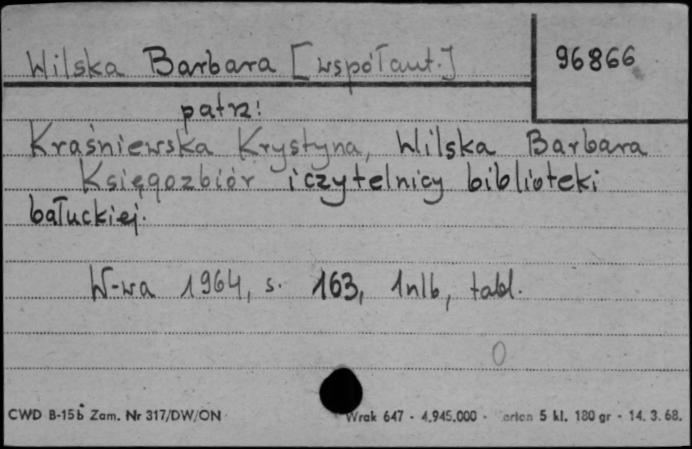 Wilska Barbara [współaut.] 96866
patrz:
Kraśniewska Krystyna, Wilska Barbara
Księgozbiór i czytelnicy biblioteki
bałuckiej.
W-wa 1964, s. 163, 1nlb, tabl.
0
CWD B-15b Zam. Nr 317/DW/ON Wrak 647 - 4.945.000 - 5 kl. 180 gr - 14. 3. 68.